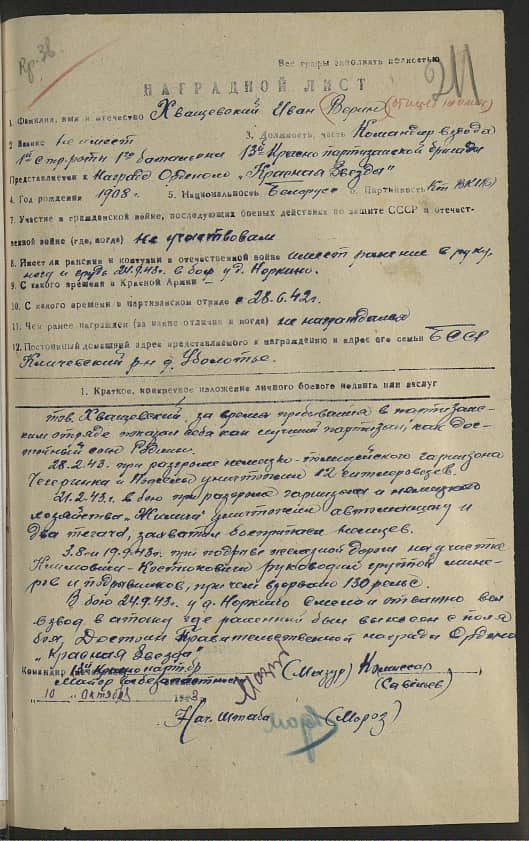 Пр. 38.
Все графы заполнять полностью
211
НАГРАДНОЙ ЛИСТ
1. Фамилия, имя и отчество Хващевский Иван
2 Звание не имеет 3. Должность, часть Командир взвода
1ой стр. роты 1го батальона 13й Красно партизанской бригады
Представляется к Награде Орденом „Красная Звезда"
4. Год рождения 1908 г. 5. Национальность Белорус 6. Партийность
7. Участие в гражданской войне, последующих боевых действиях по защите СССР и отечест-
венной войне (где, когда) не участвовал
8. Имеет ли ранения и контузии в отечественной войне имеет ранение в руку,
ногу и грудь 24.9.43г. в бою у д. Норкино.
9. С какого времени в Красной Армии –
10. С какого времени в партизанском отряде с 28.6.42г.
11. Чем ранее награжден (за какие отличия и когда) не награждался
12. Постоянный домашний адрес представляемого к награждению и адрес его семьи БССР
Кличевский р-н д. Уболотье.
1. Краткое, конкретное изложение личного боевого подвига или заслуг
тов. Хващевский за время пребывания в партизанс-
ком отряде показал себя как лучший партизан, как дос-
тойный сын Родины.
28.2.43. при разгроме немецко-полицейского гарнизона
Чечерника и уничтожил 12 гитлеровцев.
21.2.43г. в бою при разгроме гарнизона и немецкого
хозяйства „ " уничтожил автомашину и
два тягача, захватил боеприпасы немцев.
3.8 и 19.9.43г. при подрыве железной дороги на участке
руководил группой мине-
ров и подрывников, при чем взорвано 130 рельс.
В бою 24.9.43г. у д. Норкино смело и отважно вел
взвод в атаку где раненный был вынесен с поля
боя, Достоин Правительственной награды Ордена
„Красная Звезда"
Командир 13й Красно парт. бр. (Мазур) Комиссар
Майор (Савёшев)
10 октября 1943
Нач. Штаба (Мороз)